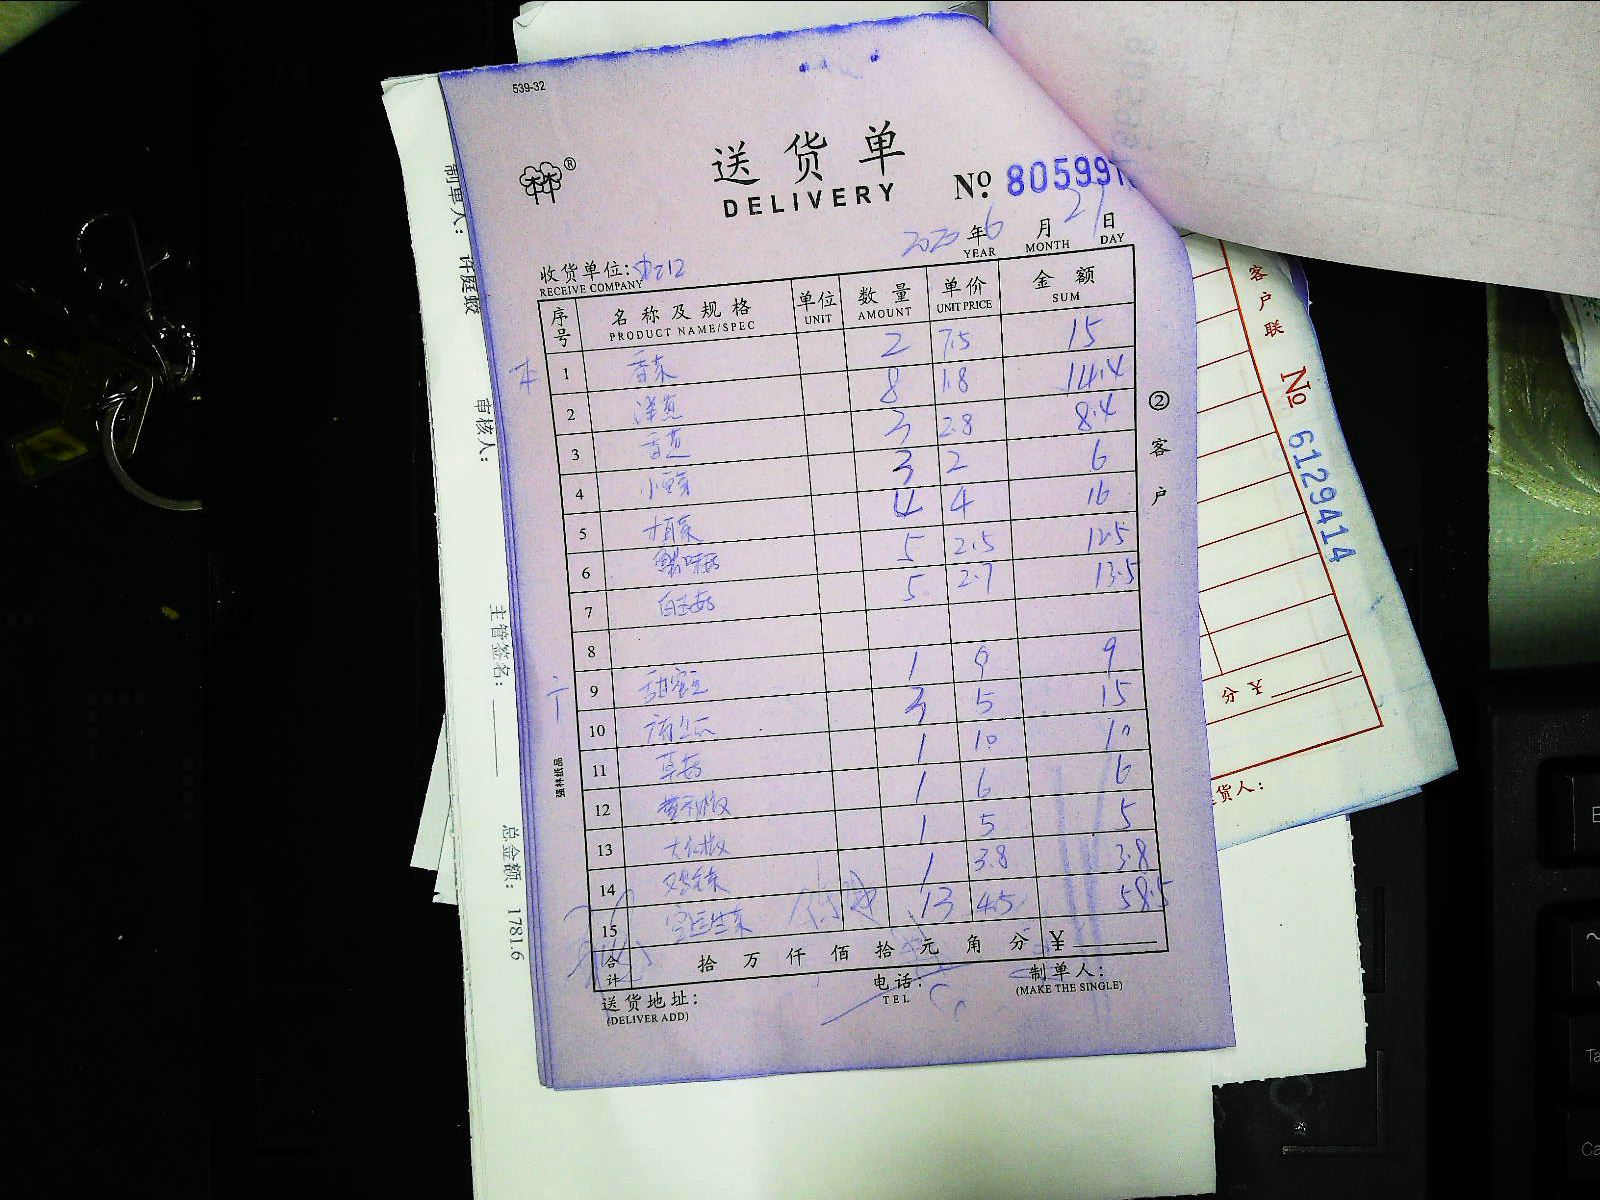 539-32
®
送货单
DELIVERY
№ 805997
2020年6月21日
YEAR MONTH DAY
收货单位:
RECEIVE COMPANY
序号 名称及规格 单位 数量 单价 金额
PRODUCT NAME/SPEC UNIT AMOUNT UNIT PRICE SUM
1 香菜 2 7.5 15
2 洋葱 8 1.8 14.4
3 3 2.8 8.4
4 小 3 2 6
5 4 4 16
6 5 2.5 12.5
7 白玉菇 5 2.7 13.5
8
9 甜蜜豆 1 9 9
10 3 5 15
11 草菇 1 10 10
12 1 6 6
13 大红椒 1 5 5
14 1 3.8 3.8
15 生菜 13 4.5 58.5
合计 拾 万 仟 佰 拾 元 角 分 ¥
送货地址:
(DELIVER ADD)
电话:
TEL
制单人:
(MAKE THE SINGLE)
② 客户
强林纸品
制单人: 许庭
审核人:
主管签名:
总金额: 1781.6
客户联
№ 6129414
分 ¥
货人: